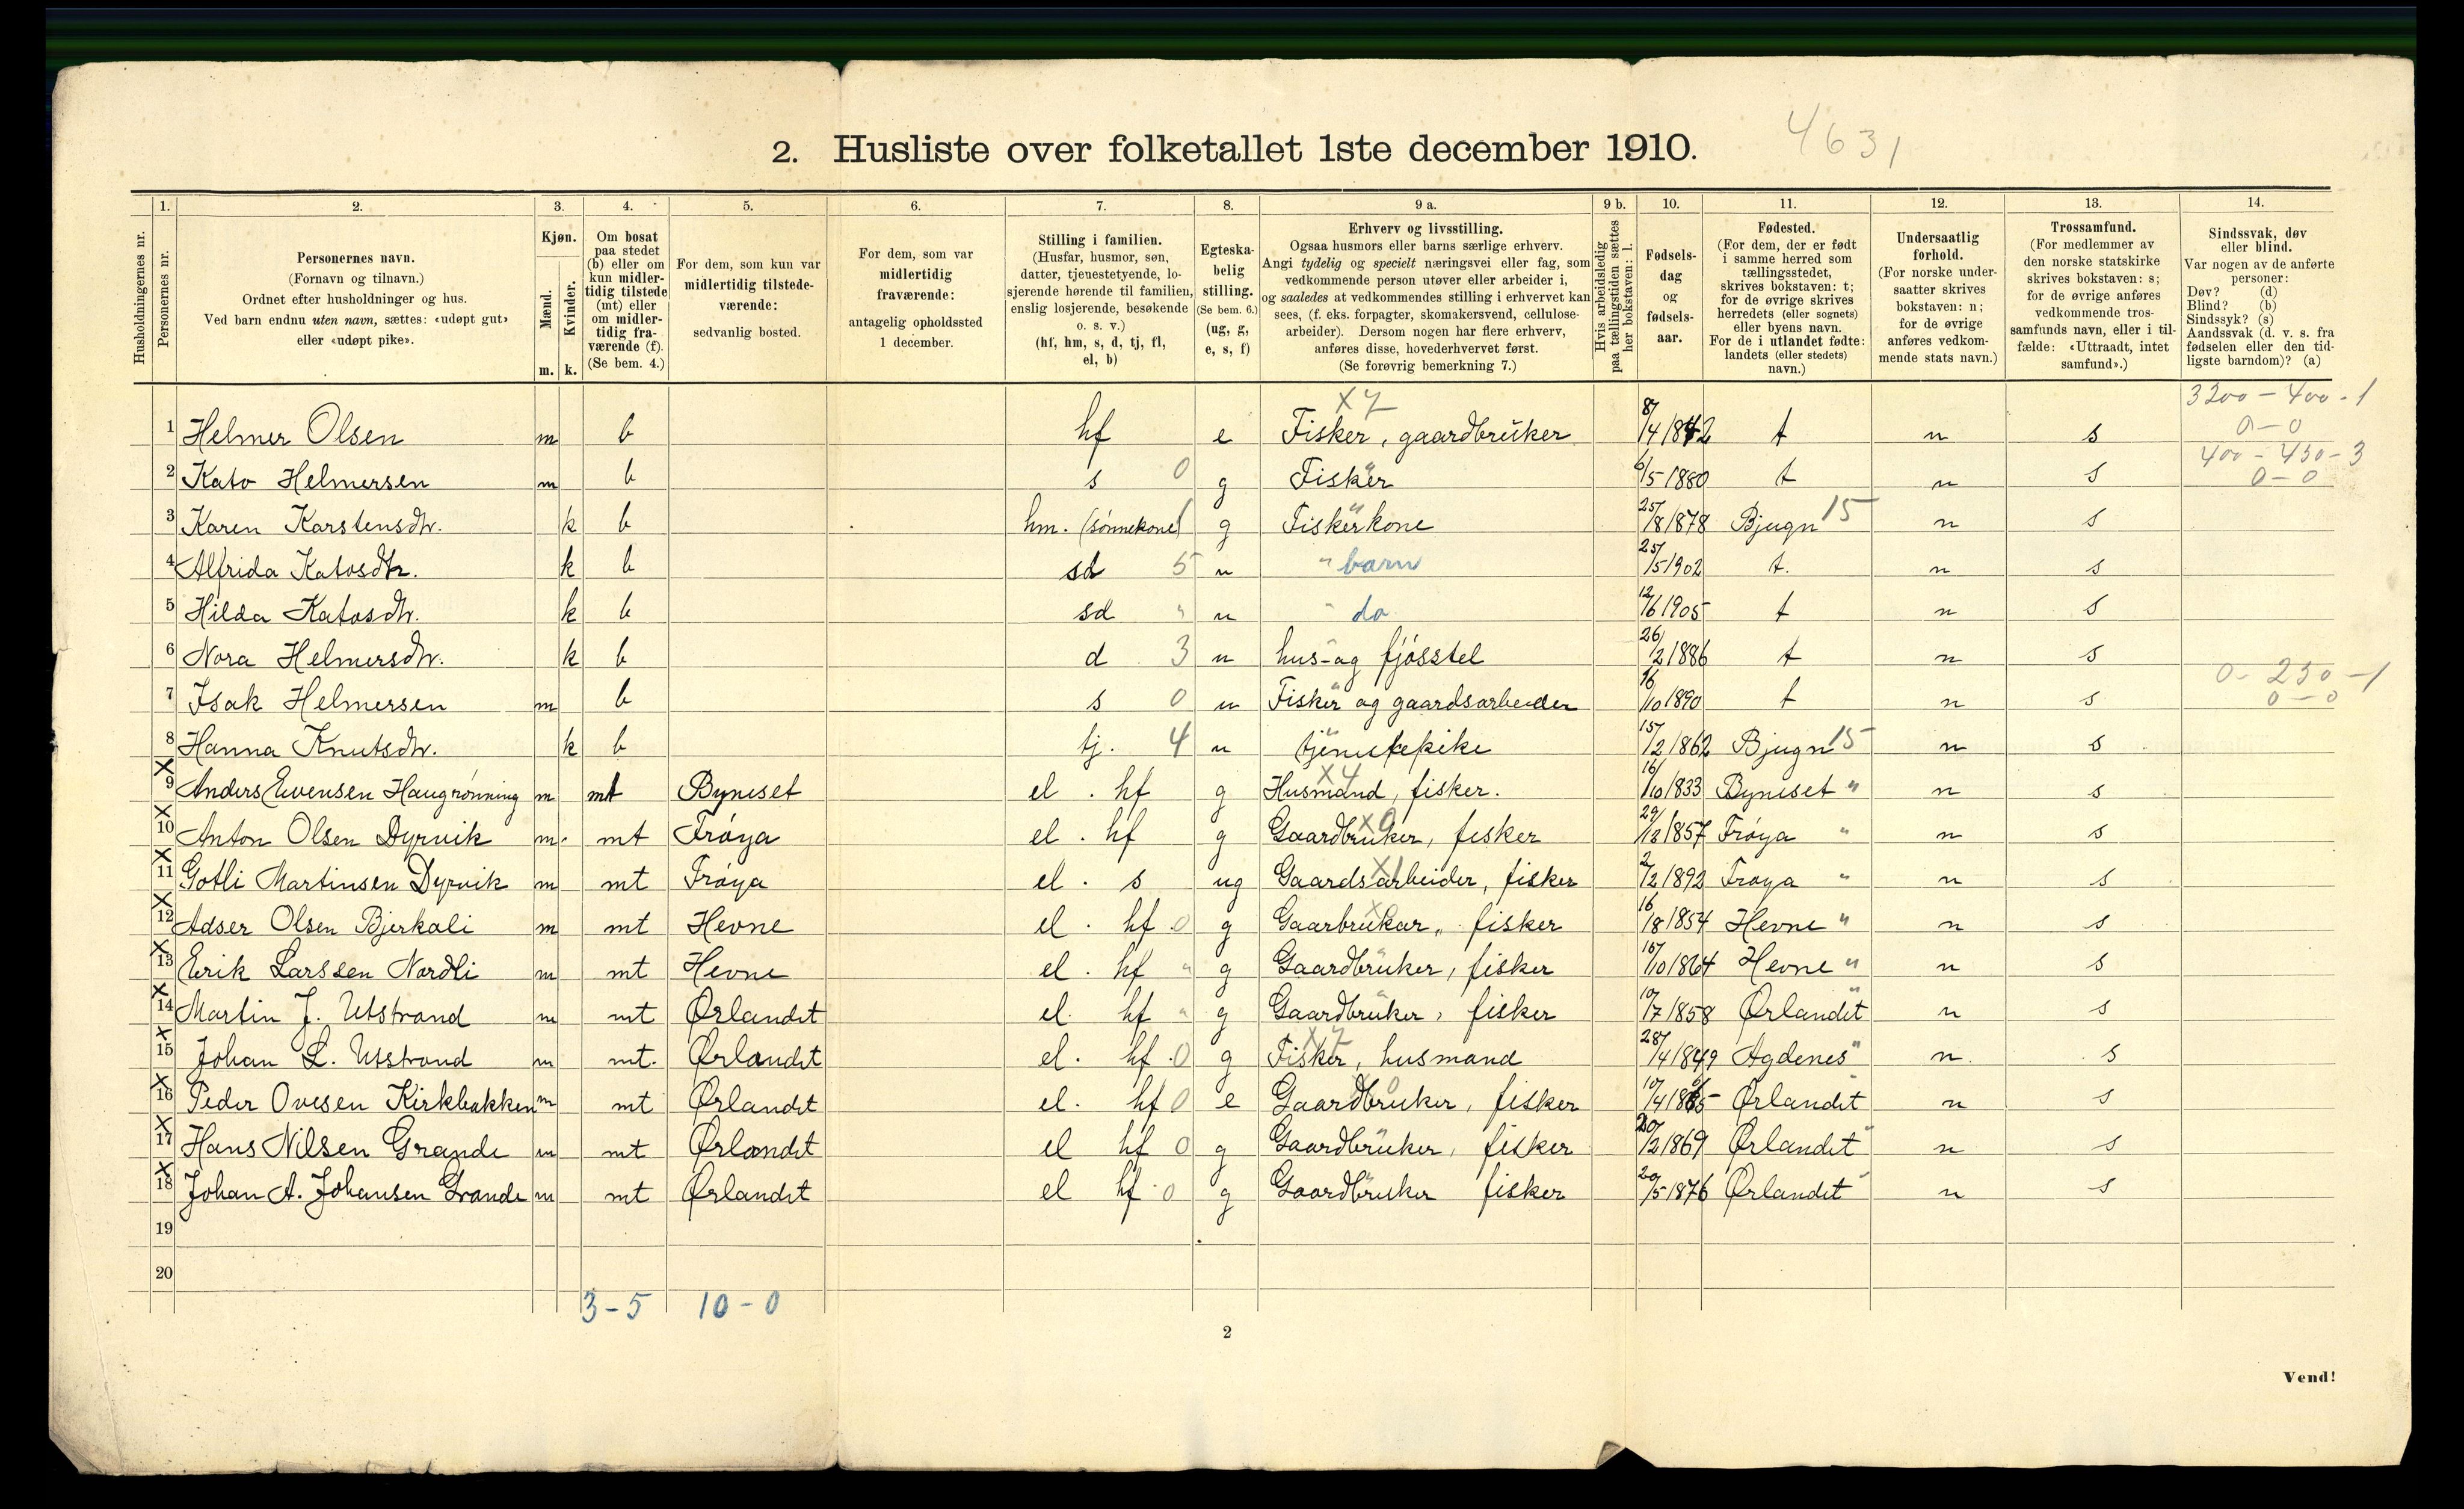 2. Husliste over folketallet 1ste december 1910.
4631
1. 2. 3. 4. 5. 6. 7. 8. 9 a. 9 b. 10. 11. 12. 13. 14.
Husholdningernes nr.
Personernes nr.
Personernes navn.
(Fornavn og tilnavn.)
Ordnet efter husholdninger og hus.
Ved barn endnu uten navn, sættes: «udøpt gut»
eller «udøpt pike».
Kjøn.
Mænd.
Kvinder.
m. k.
Om bosat
paa stedet
(b) eller om
kun midler-
tidig tilstede
(mt) eller
om midler-
tidig fra-
værende (f).
(Se bem. 4.)
For dem, som kun var
midlertidig tilstede-
værende:
sedvanlig bosted.
For dem, som var
midlertidig
fraværende:
antagelig opholdssted
1 december.
Stilling i familien.
(Husfar, husmor, søn,
datter, tjenestetyende, lo-
sjerende hørende til familien,
enslig losjerende, besøkende
o. s. v.)
(hf, hm, s, d, tj, fl,
el, b)
Egteska-
belig
stilling.
(Se bem. 6.)
(ug, g,
e, s, f)
Erhverv og livsstilling.
Ogsaa husmors eller barns særlige erhverv.
Angi tydelig og specielt næringsvei eller fag, som
vedkommende person utøver eller arbeider i,
og saaledes at vedkommendes stilling i erhvervet kan
sees, (f. eks. forpagter, skomakersvend, cellulose-
arbeider). Dersom nogen har flere erhverv,
anføres disse, hovederhvervet først.
(Se forøvrig bemerkning 7.)
Hvis arbeidsledig
paa tællingstiden sættes
her bokstaven: l.
Fødsels-
dag
og
fødsels-
aar.
Fødested.
(For dem, der er født
i samme herred som
tællingsstedet,
skrives bokstaven: t;
for de øvrige skrives
herredets (eller sognets)
eller byens navn.
For de i utlandet fødte:
landets (eller stedets)
navn.)
Undersaatlig
forhold.
(For norske under-
saatter skrives
bokstaven: n;
for de øvrige
anføres vedkom-
mende stats navn.)
Trossamfund.
(For medlemmer av
den norske statskirke
skrives bokstaven: s;
for de øvrige anføres
vedkommende tros-
samfunds navn, eller i til-
fælde: «Uttraadt, intet
samfund».)
Sindssvak, døv
eller blind.
Var nogen av de anførte
personer:
Døv? (d)
Blind? (b)
Sindssyk? (s)
Aandssvak (d. v. s. fra
fødselen eller den tid-
ligste barndom)? (a)
X 7 3200 - 400 - 1
1 Helmer Olsen m b hf e Fisker, gaardbruker 8/4 1842 t n s 0 - 0
400 - 450 - 3
2 Kato Helmersen m b s 0 g Fisker 6/5 1880 t n s 0 - 0
3 Karen Karstensdtr. k b hm. (sønnekone) g Fiskerkone 25/8 1878 Bjugn 15 n s
4 Alfrida Katosdtr. k b sd 5 u " barn 25/5 1902 t. n s
5 Hilda Katosdtr. k b sd " u " do 12/6 1905 t n s
6 Nora Helmersdtr. k b d 3 u hus- og fjósstel 26/2 1886 t n s
0 - 250 - 1
7 Isak Helmersen m b s 0 u Fisker og gaardsarbeider 16/10 1890 t n s 0 - 0
8 Hanna Knutsdtr. k b tj. 4 u tjenestepike 15/2 1862 Bjugn 15 n s
X 9 Anders Evensen Haugrønning m mt Byneset el . hf g Husmand, fisker. X 4 16/10 1833 Byneset " n s
X 10 Anton Olsen Dyrvik m. mt Frøya el . hf g Gaardbruker, fisker X 0 29/12 1857 Frøya " n s
X 11 Gotli Martinsen Dyrvik m mt Frøya el . s ug Gaardsarbeider, fisker X 1 2/2 1892 Frøya " n s
X 12 Adser Olsen Bjerkali m mt Hevne el . hf 0 g Gaarbrukar, fisker 16/8 1854 Hevne " n s
X 13 Erik Larssen Nordli m mt Hevne el . hf " g Gaardbruker, fisker 15/10 1864 Hevne " n s
X 14 Martin J. Utstrand m mt Ørlandet el. hf " g Gaardbruker, fisker 10/7 1858 Ørlandet " n s
X 15 Johan L. Utstrand m mt. Ørlandet el. hf 0 g Fisker, husmand X 7 28/4 1849 Agdenes " n. s
X 16 Peder Ovesen Kirkbakken m mt Ørlandet el. hf 0 e Gaardbruker, fisker 10/4 1865 Ørlandet n s
X 17 Hans Nilsen Grande m mt Ørlandet el hf 0 g Gaardbruker, fisker 20/2 1869 Ørlandet " n s
X 18 Johan A. Johansen Grande m mt Ørlandet el hf 0 g Gaardbruker fisker 20/5 1876 Ørlandet " n s
19
20
3 - 5 10 - 0
2
Vend!